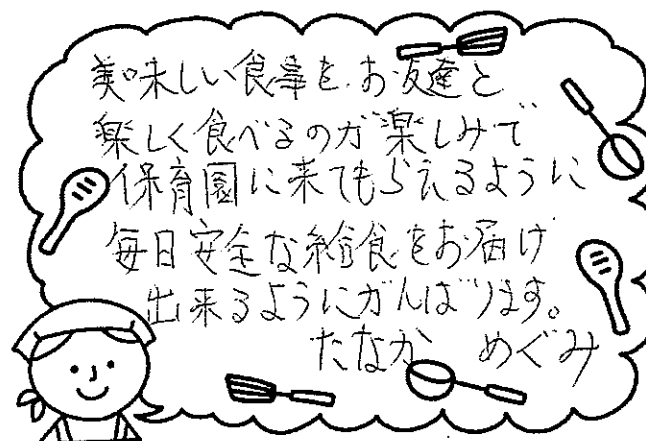 美味しい食事を、お友達と
楽しく食べるのが楽しみで
保育園に来てもらえるように
毎日安全な給食をお届け
出来るようにがんばります。
たなか めぐみ